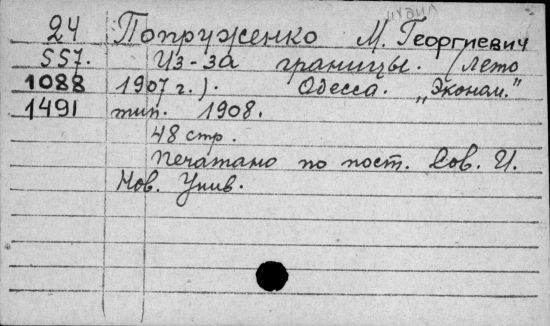 ихаил
24 Попруженко М. Георгиевич
557. Из-за границы. (Лето
1088 1907 г.). Одесса. „Эконом."
1491 тип. 1908.
48 стр.
Печатано по пост. Сов. И.
Нов. Унив.